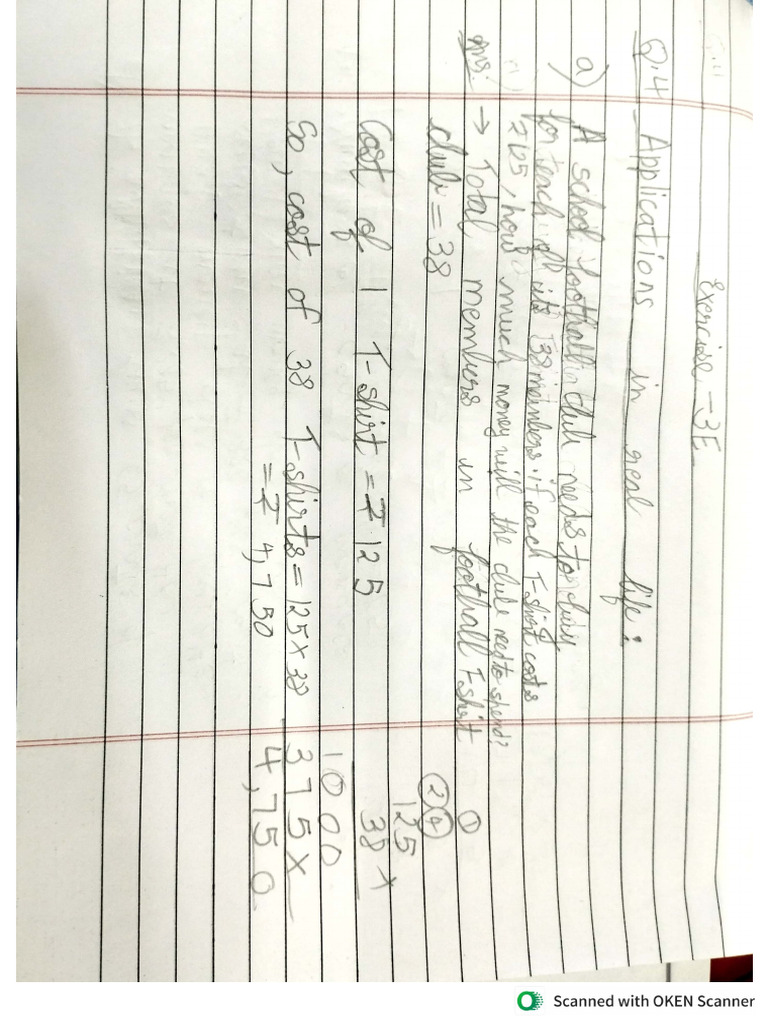 Exercise - 3E
Q.4 Applications in real life:
a) A school football club needs to buy
for each of its 38 members. if each T-shirt costs
₹125, how much money will the club need to spend?
ans: → Total members in football T-shirt
club = 38
Cost of 1 T-shirt = ₹ 125
So, cost of 38 T-shirts = 125 × 38
= ₹ 4,750
1
2 4
125
38 ×
1000
375 ×
4,750
Scanned with OKEN Scanner